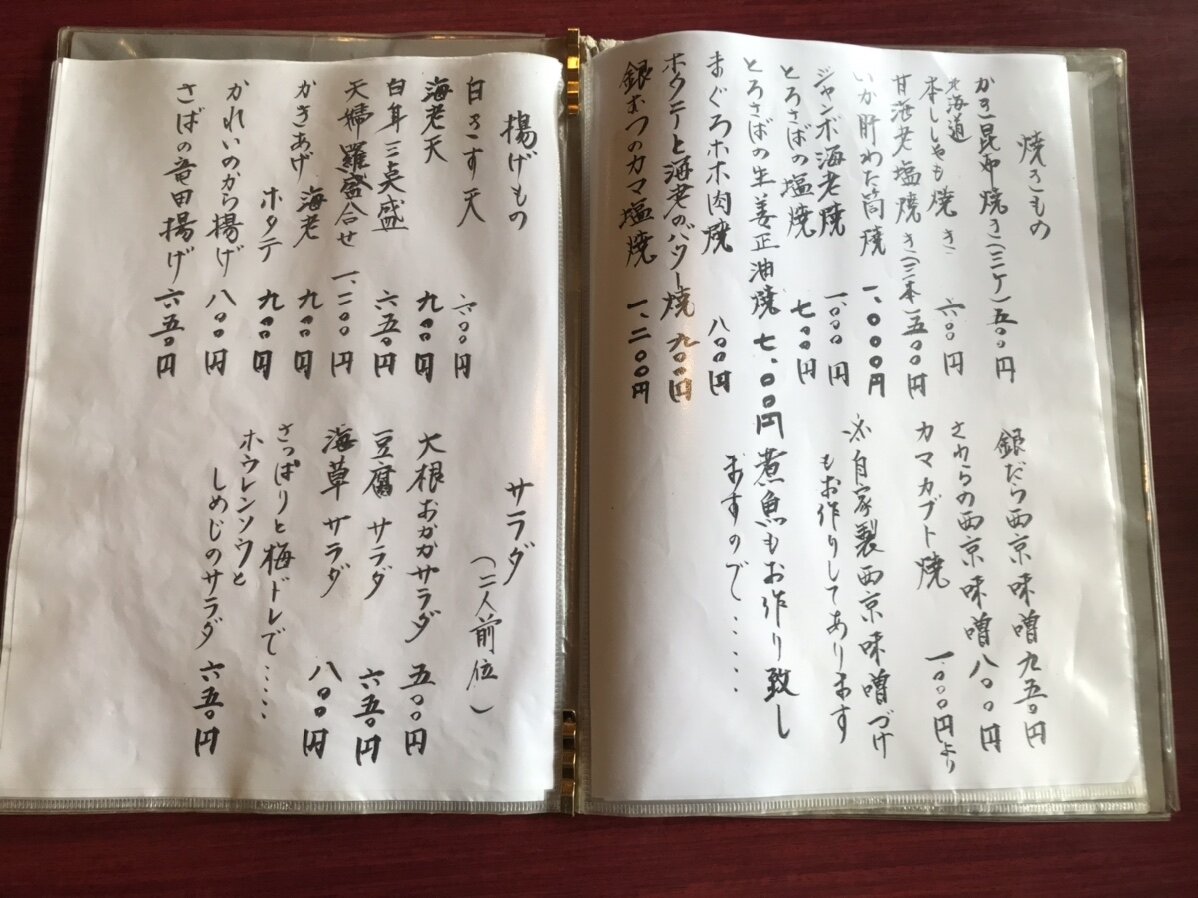 焼きもの
かき昆布焼き(三ケ)五〇〇円
北海道
本ししゃも焼き 六〇〇円
甘海老塩焼き(三本)五〇〇円
いか肝わた筒焼 一、〇〇〇円
ジャンボ海老焼 一、〇〇〇円
とろさばの塩焼 七〇〇円
とろさばの生姜正油焼 七〇〇円
まぐろホホ肉焼 八〇〇円
ホタテと海老のバター焼 九〇〇円
銀むつのカマ塩焼 一、二〇〇円
銀だら西京味噌 九五〇円
さわらの西京味噌 八〇〇円
カマカブト焼 一、〇〇〇円より
※自家製西京味噌づけ
もお作りしてあります
煮魚もお作り致し
ますので・・・・・
揚げもの
白きす天 六〇〇円
海老天 九〇〇円
白茸三点盛 六五〇円
天婦羅盛合せ 一、二〇〇円
かきあげ 海老 九〇〇円
ホタテ 九〇〇円
かれいのから揚げ 八〇〇円
さばの竜田揚げ 六五〇円
サラダ
(二人前位)
大根おかかサラダ 五〇〇円
豆腐サラダ 六五〇円
海草サラダ 八〇〇円
さっぱりと梅ドレで・・・・・
ホウレンソウと
しめじのサラダ 六五〇円